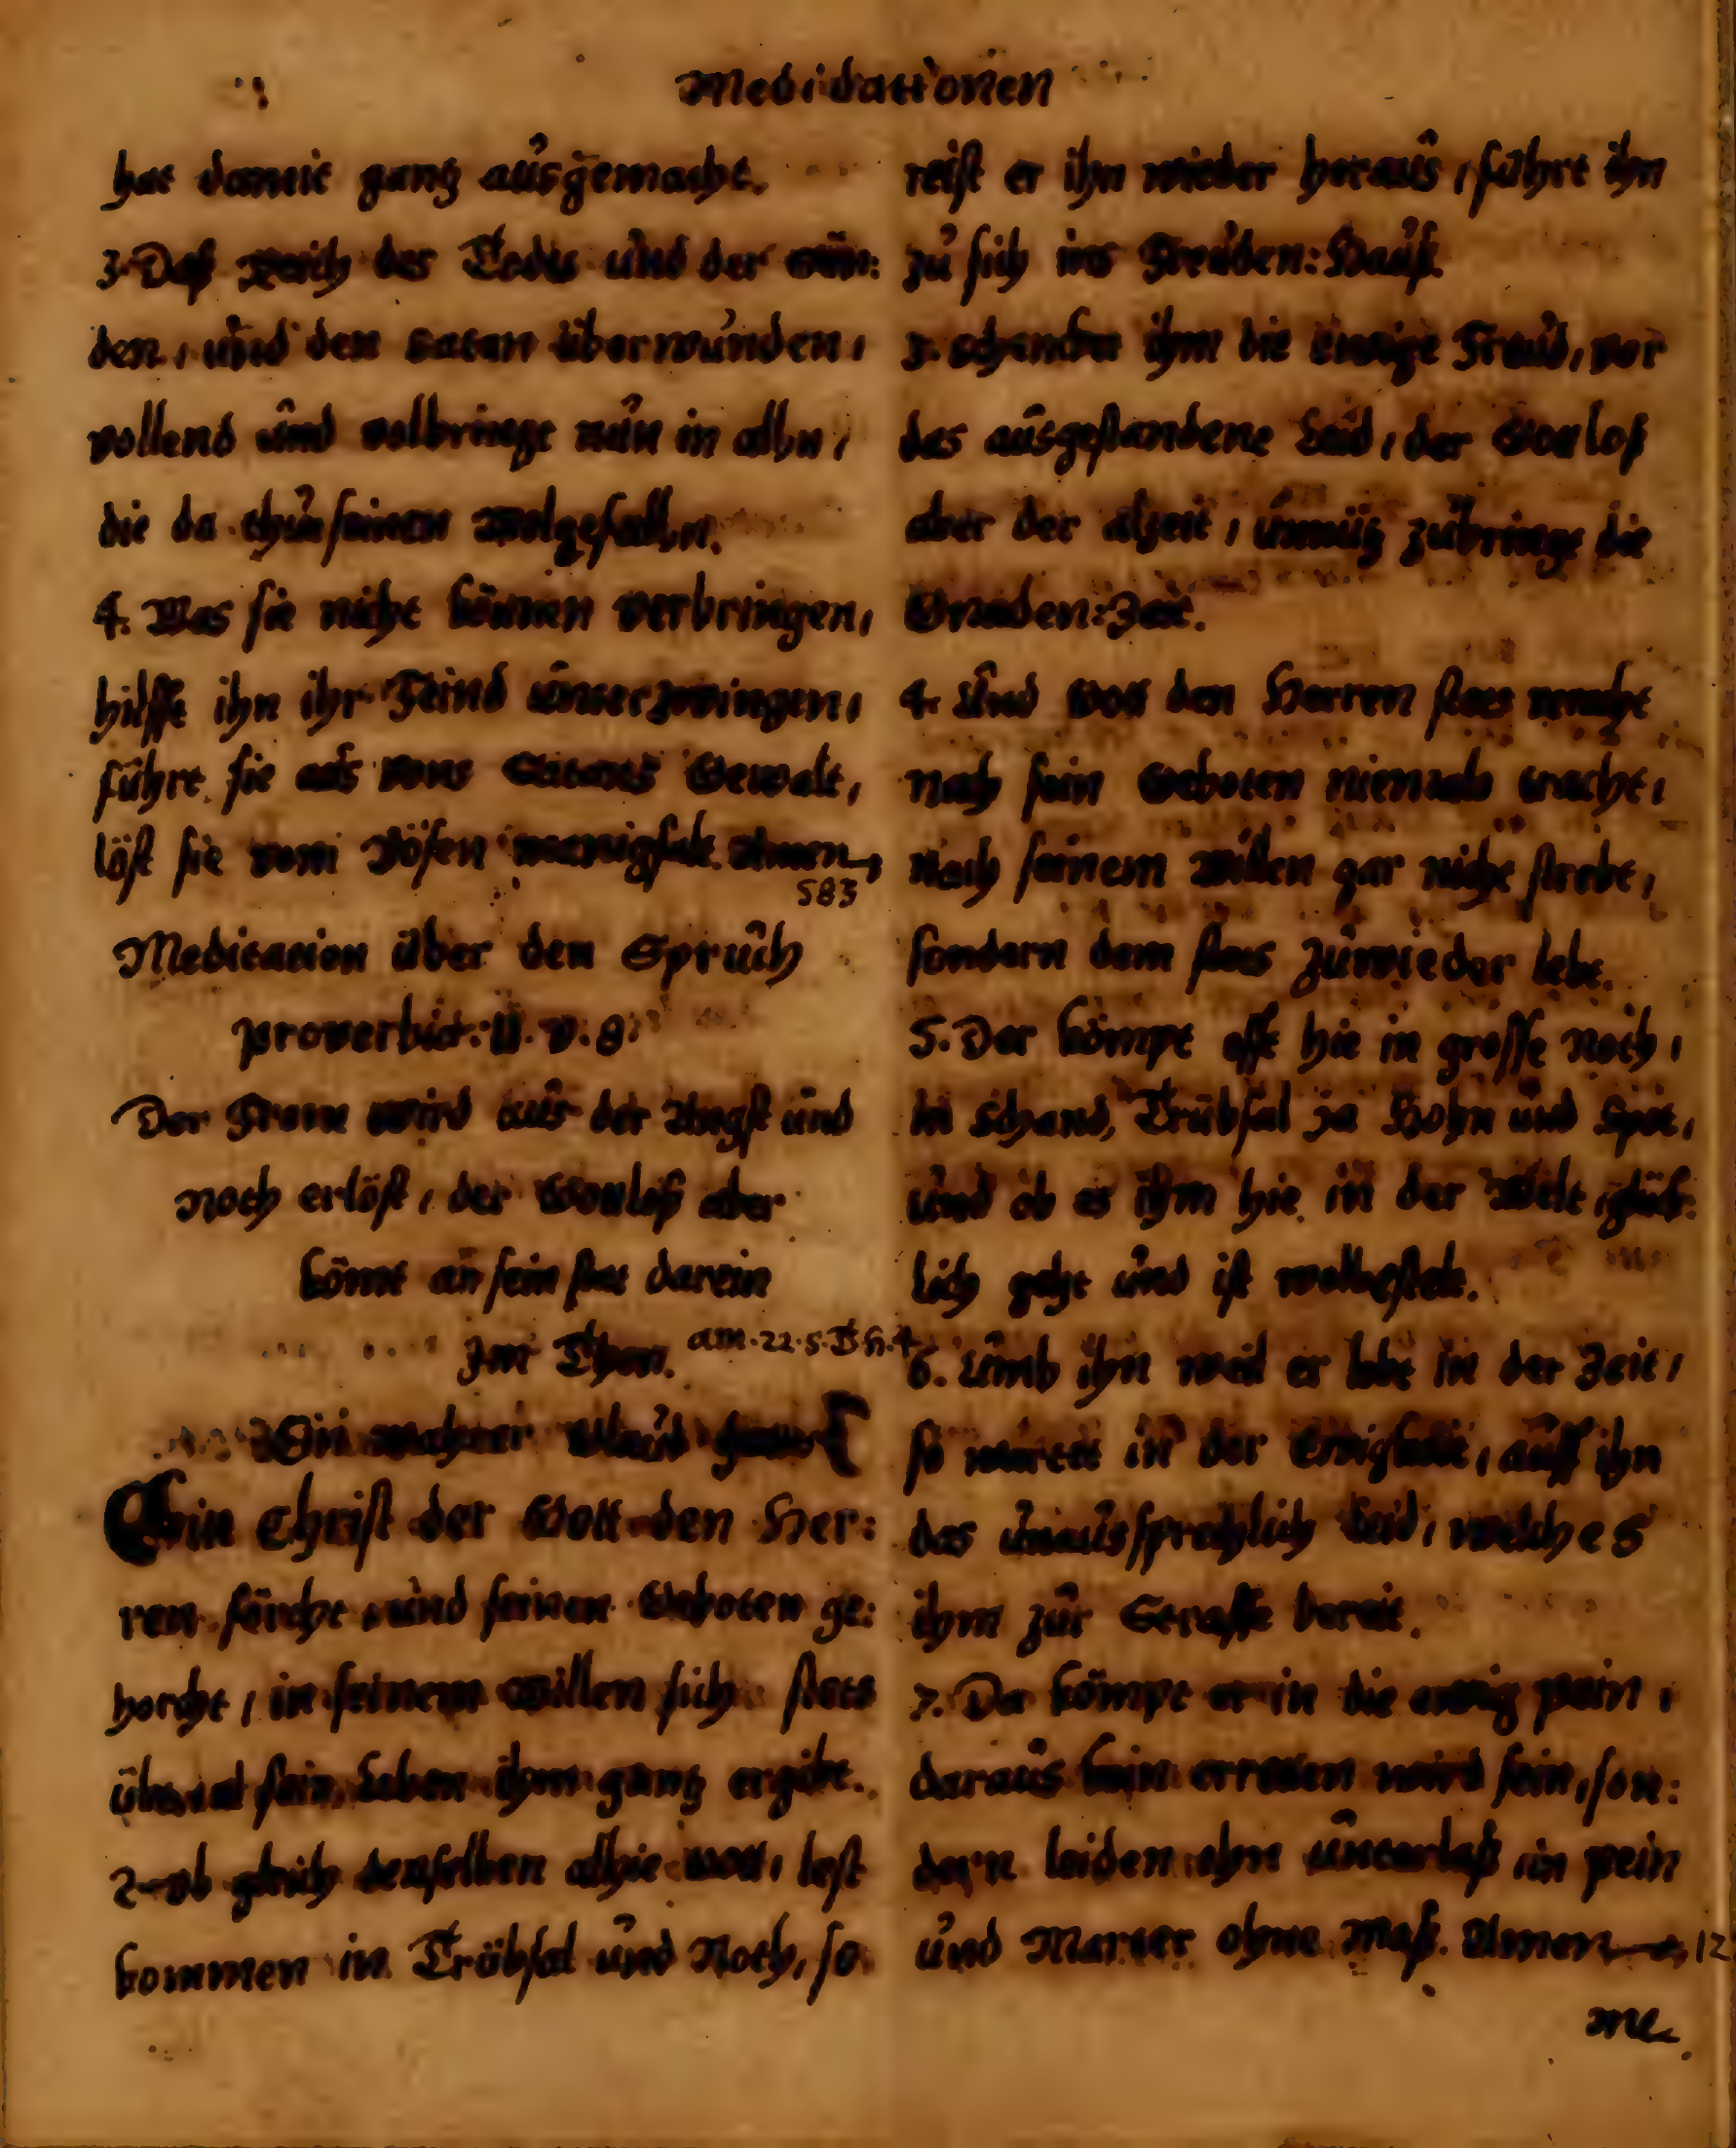 Medidationen
hat damit gantz ausgemacht.
3. Daß Reich des Todes und der Sün:
den, und den Satan überwunden,
vollend und volbringt nun in alln,
die da thun seinen Wolgefalln.
4. Was sie nicht können verbringen,
hilfft ihn ihr Feind unterzwingen,
führt sie aus vons Satans Gewalt,
löst sie vom Bösen manigfalt. Amen
583
Meditation über den Spruch
Proverbior: 11. v. 8.
Der From wird aus der Angst und
Noth erlöst, der Gottloß aber
kömt an sein stat darein
Im Thon. am. 22. s. Th. 4
Ein wahrer Glaub
Ein Christ der Gott den Her:
ren förcht und seinen Geboten ge:
horcht, in seinem Willen sich stets
überal sein Leben ihm gantz ergibt.
2. Ob gleich denselben alhie Gott, lest
kommen in Tröbsal und Noth, so
reist er ihn wieder heraus, führt ihn
zu sich ins Freuden: Hauß.
3. Schencket ihm die ewige Freud, vor
das ausgestandene Leid, der Gottloß
aber der alzeit, unnütz zubringt die
Gnaden: Zeit.
4. Und Gott den Herren stets
nach sein Geboten niemals tracht,
Nach seinem Willen gar nicht strebt,
sondern dem stets zuwieder lebt.
5. Der kömpt offt hie in grosse Noth,
in Schand, Trübsal ja Hohn und Spot,
und ob es ihm hie in der Welt, glück:
lich geht und ist wolbestelt.
6. Umb ihn weil er lebt in der Zeit,
so wartet in der Ewigkeit, auff ihn
das unaussprechlich Leid, welches
ihm zur Straffe bereit.
7. Da kömpt er in die ewig Pein,
daraus kein erretten wird sein, son:
dern leiden ohn unterlaß in Pein
und Marter ohne Maß. Amen 12
Me